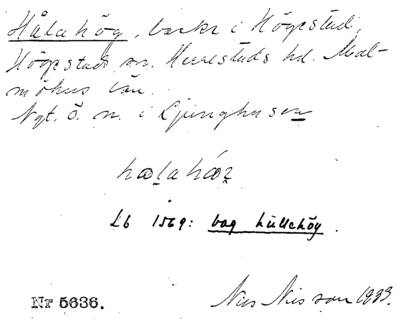 Hålahög, backe i Högestad,
Högestads sn. Herrestads hd. Mal-
möhus län.
Ngt. ö. n. i Ljunghusen
halahöz
Lb 1569: bag hüllehög.
Nr 5636. Nils Nilsson 1933.